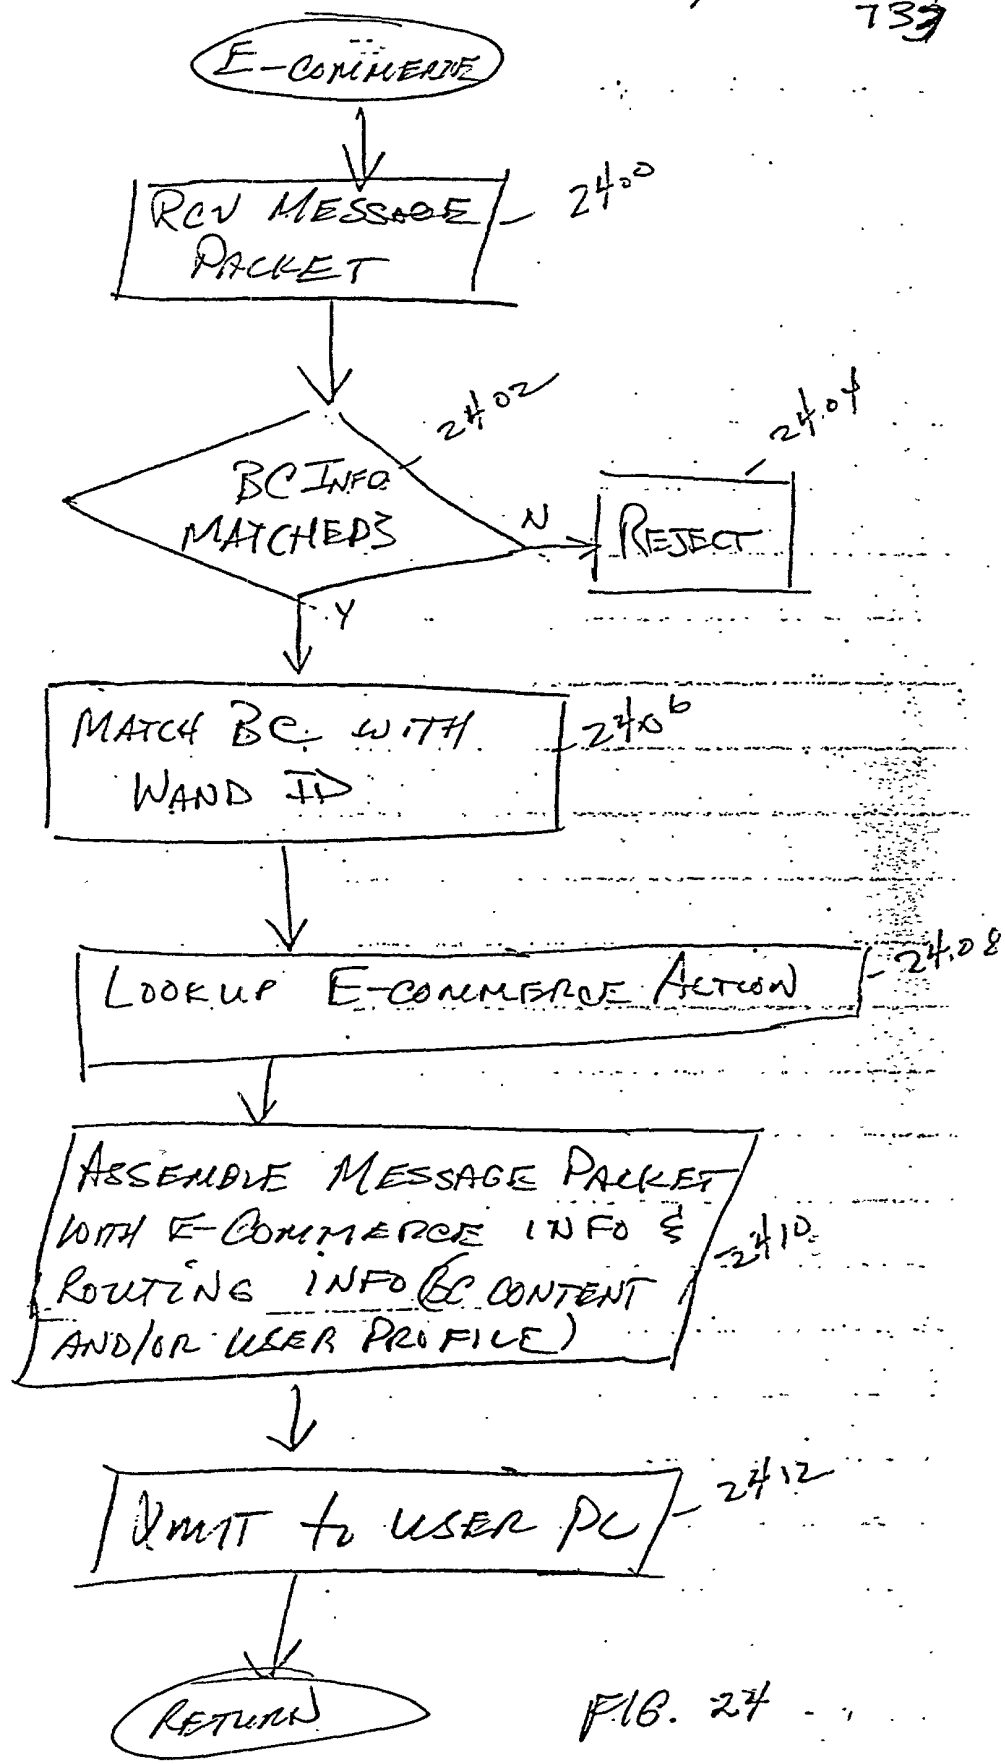 733
E-COMMERCE
RCV MESSAGE
PACKET
2400
2402
BC INFO
MATCHED?
N
2404
REJECT
Y
MATCH BC WITH
WAND ID
2406
LOOKUP E-COMMERCE ACTION
2408
ASSEMBLE MESSAGE PACKET
WITH E-COMMERCE INFO &
ROUTING INFO (BC CONTENT
AND/OR USER PROFILE)
2410
XMIT to USER PC
2412
RETURN
FIG. 24